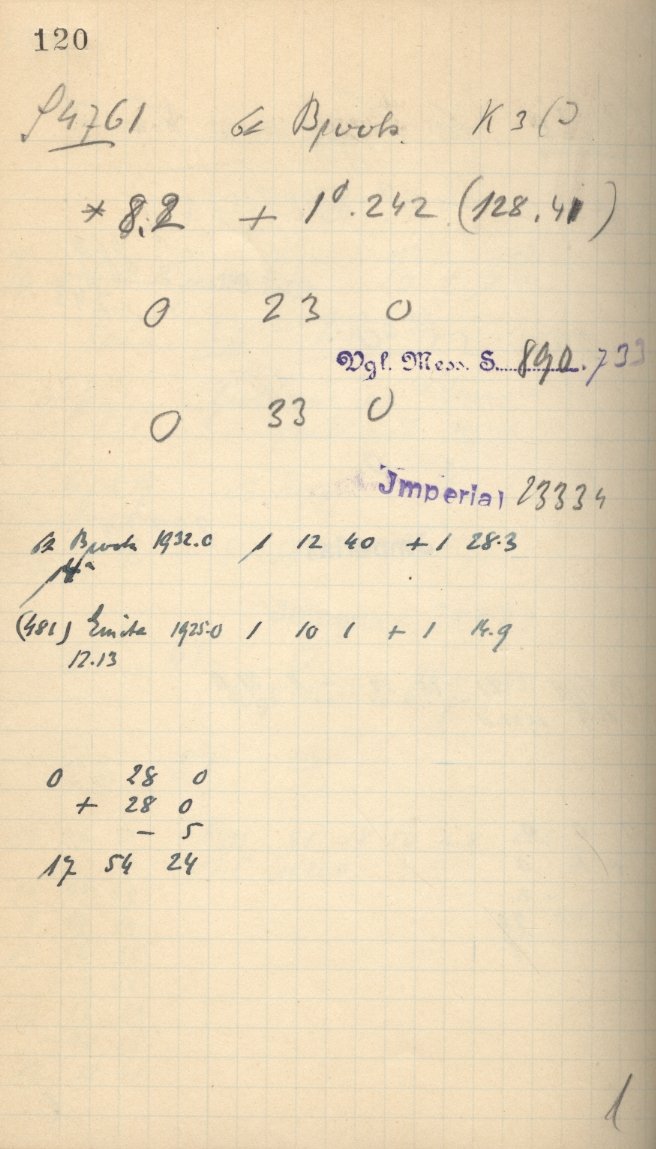 120
S4761 K 3
* 8.2 + 1°.242 (128.41)
0 23 0
Vgl. Mess. S. 890. 733
0 33 0
Imperial 23334
1932.0 1 12 40 + 1 28.3
14ᵐ
(481) Emita 1925.0 1 10 1 + 1 14.9
12.13
0 28 0
+ 28 0
− 5
17 54 24
1